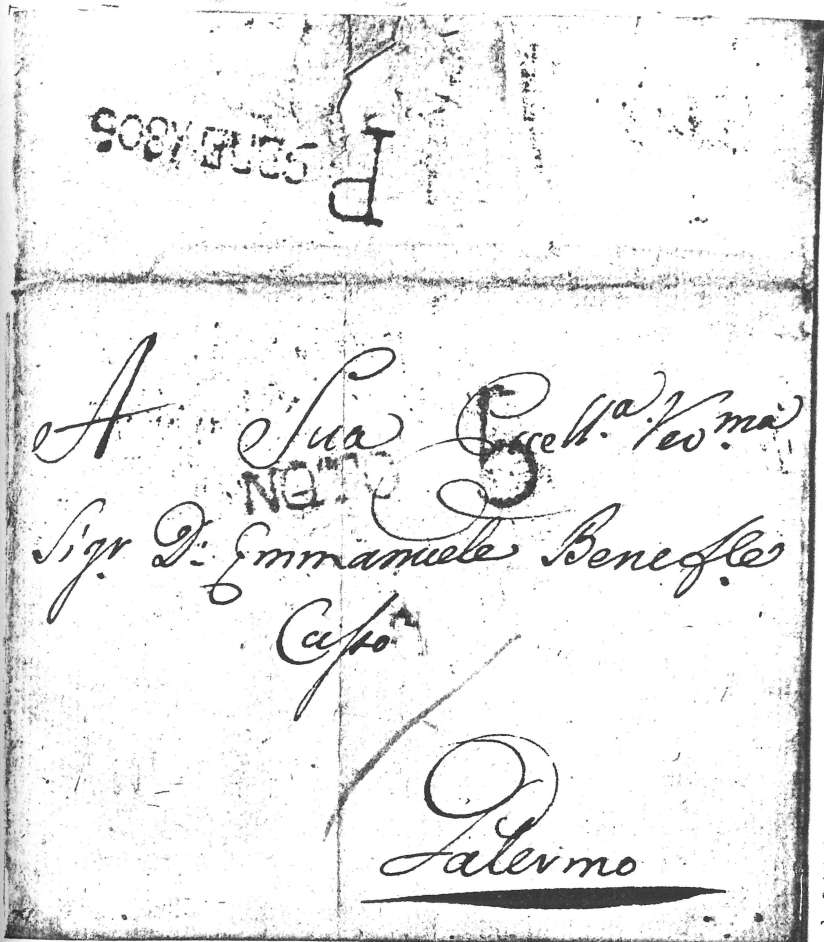 5 GE 1805
P
A Sua Eccell.a Ven.ma
NOTO
5
Sigr D: Emmanuele Benefle
Casso
A
Palermo